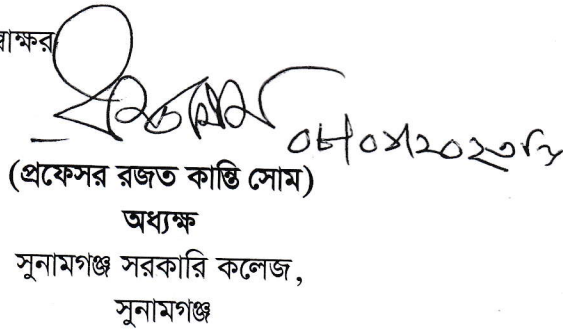 স্বাক্ষর
০৮/০১/২০২৩খ্রি
(প্রফেসর রজত কান্তি সোম)
অধ্যক্ষ
সুনামগঞ্জ সরকারি কলেজ,
সুনামগঞ্জ